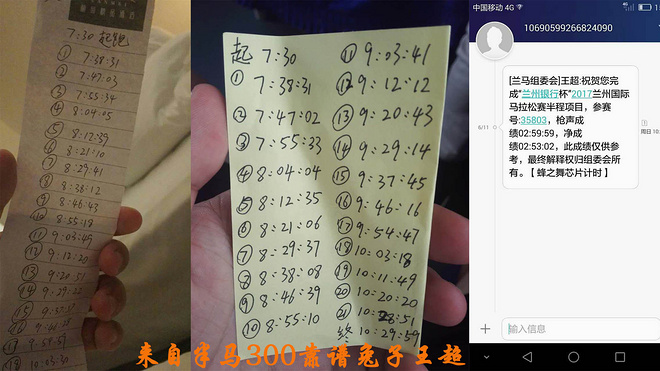 7:30 起跑
① 7:38:31
② 7:47:03
③ 7:55:34
④ 8:04:05
⑤ 8:12:39
⑥ 8:21:10
⑦ 8:29:41
⑧ 8:38:12
⑨ 8:46:43
⑩ 8:55:18
⑪ 9:03:49
⑫ 9:12:20
⑬ 9:20:51
⑭ 9:29:22
⑮
⑯
⑰
⑱ 10:03:30
起 7:30
① 7:38:31
② 7:47:02
③ 7:55:33
④ 8:04:04
⑤ 8:12:35
⑥ 8:21:06
⑦ 8:29:37
⑧ 8:38:08
⑨ 8:46:39
⑩ 8:55:10
⑪ 9:03:41
⑫ 9:12:12
⑬ 9:20:43
⑭ 9:29:14
⑮ 9:37:45
⑯ 9:46:16
⑰ 9:54:47
⑱ 10:03:18
⑲ 10:11:49
⑳ 10:20:20
㉑ 10:28:51
终 10:29:59
中国移动 4G
10690599266824090
[兰马组委会]王超:祝贺您完
成“兰州银行杯”2017兰州国际
马拉松赛半程项目，参赛
号:35803，枪声成
绩02:59:59，净成
绩02:53:02，此成绩仅供参
考，最终解释权归组委会所
有。【蜂之舞芯片计时】
6/11
周日 10:
输入信息
来自半马300靠谱兔子王超